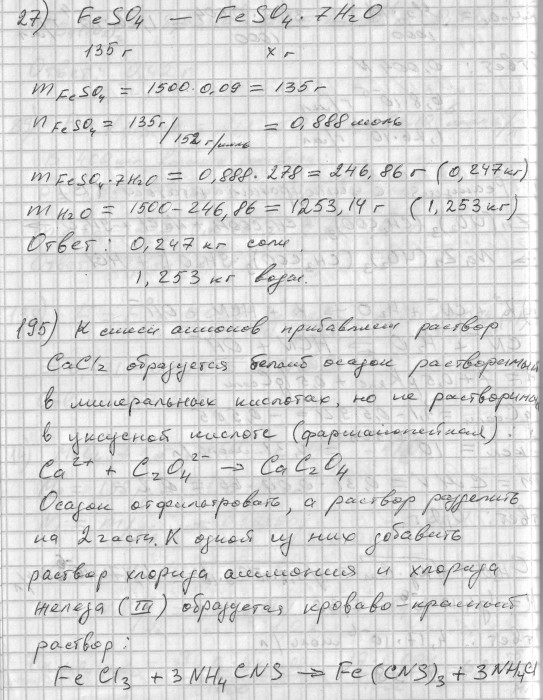 27) FeSO₄ — FeSO₄ · 7H₂O
135 г x г
m FeSO₄ = 1500 · 0,09 = 135 г
n FeSO₄ = 135 г / 152 г/моль = 0,888 моль
m FeSO₄·7H₂O = 0,888 · 278 = 246,86 г (0,247 кг)
m H₂O = 1500 - 246,86 = 1253,14 г (1,253 кг)
Ответ: 0,247 кг соли
1,253 кг воды.
195) К смеси анионов прибавляем раствор
CaCl₂ образуется белый осадок растворимый
в минеральных кислотах, но не растворим
в уксусной кислоте (фармакопейная):
Ca²⁺ + C₂O₄²⁻ → CaC₂O₄
Осадок отфильтровать, а раствор разделить
на 2 части. К одной из них добавить
раствор хлорида аммония и хлорида
железа (III) образуется кроваво-красный
раствор:
FeCl₃ + 3NH₄CNS → Fe(CNS)₃ + 3NH₄Cl